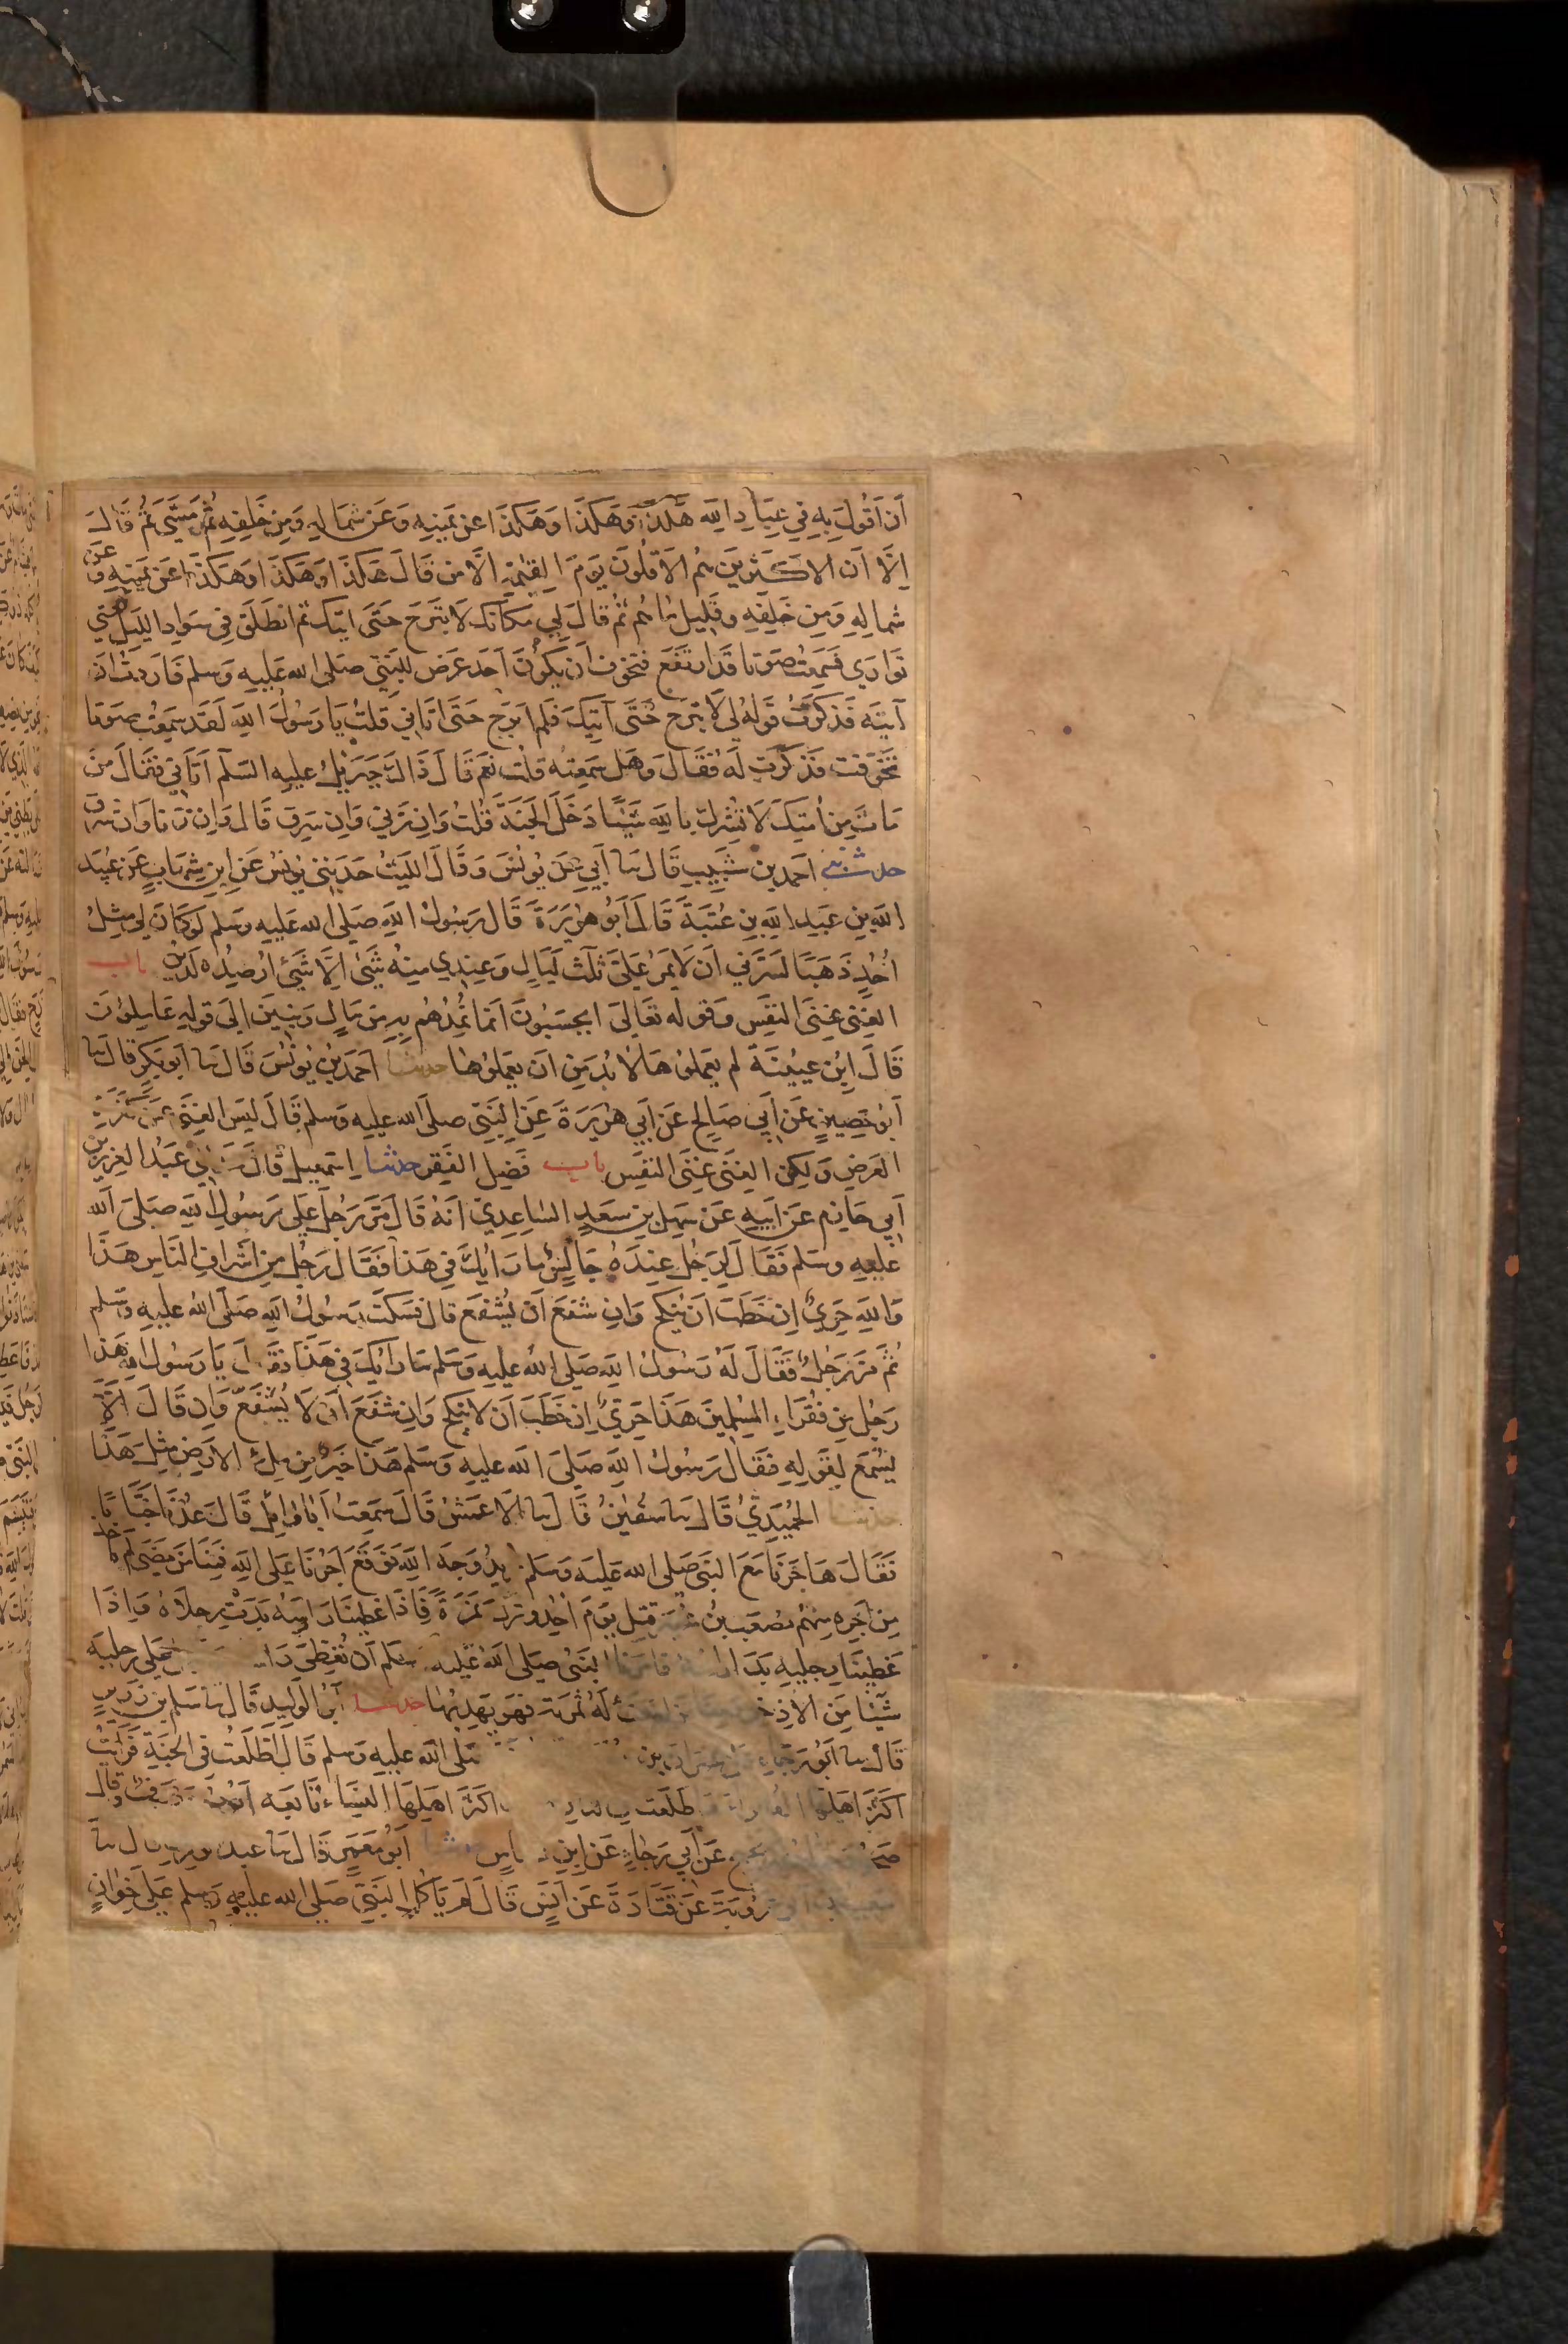 ان اقول به في عباد الله هكذا وهكذا وهكذا عن يمينه وعن شماله ومن خلفه ثم مشى ثم قال
الا ان الاكثرين هم الاقلون يوم القيمة الا من قال هكذا وهكذا وهكذا عن يمينه وعن
شماله ومن خلفه وقليل ما هم ثم قال لي مكانك لا تبرح حتى اتيك ثم انطلق في سواد الليل حتى
توارى فسمعت صوتا قد ارتفع فتخوفت ان يكون احد عرض للنبي صلى الله عليه وسلم فاردت ان
آتيه فذكرت قوله لي لا تبرح حتى آتيك فلم ابرح حتى اتاني قلت يا رسول الله لقد سمعت صوتا
تخوفت فذكرت له فقال وهل سمعته قلت نعم قال ذاك جبرئيل عليه السلم اتاني فقال من
مات من امتك لا يشرك بالله شيئا دخل الجنة قلت وان زنى وان سرق قال وان زنا وان سرق
حدثني احمد بن شبيب قال نا أبي عن يونس وقال الليث حدثني يونس عن ابن شهاب عن عبيد
الله بن عبد الله بن عتبة قال ابو هريرة قال رسول الله صلى الله عليه وسلم لو كان لي مثل
أحد ذهبا لسرني ان لا يمر علي ثلث ليال وعندي منه شيئ الا شيئ ارصده لدين باب
الغنى غنى النفس وقوله تعالى ايحسبون انما نمدهم به من مال وبنين الى قوله عاملون
قال ابن عيينة لم يعملوها لا بد من ان يعملوها حدثنا احمد بن يونس قال نا ابو بكر قال نا
أبو حصين عن أبي صالح عن أبي هريرة عن النبي صلى الله عليه وسلم قال ليس الغنى عن كثرة
العرض ولكن الغنى غنى النفس باب فضل الفقر حدثنا اسمعيل قال حدثني عبد العزيز بن
أبي حازم عن ابيه عن سهل بن سعد الساعدي انه قال مر رجل على رسول الله صلى الله
عليه وسلم فقال لرجل عنده جالس ما رايك في هذا فقال رجل من اشراف الناس هذا
والله حري ان خطب ان ينكح وان شفع أن يشفع قال فسكت رسول الله صلى الله عليه وسلم
ثم مر رجل فقال له رسول الله صلى الله عليه وسلم ما رايك في هذا فقال يا رسول الله هذا
رجل من فقراء المسلمين هذا حري ان خطب ان لا ينكح وان شفع ان لا يشفع وان قال الا
يسمع لقوله فقال رسول الله صلى الله عليه وسلم هذا خير من ملئ الارض مثل هذا
حدثنا الحميدي قال نا سفين قال نا الاعمش قال سمعت أبا وائل قال عدنا خبابا
فقال هاجرنا مع النبي صلى الله عليه وسلم نريد وجه الله فوقع اجرنا على الله فمنا من مضى لم ياخذ
من اجره منهم مصعب بن عمير قتل يوم أحد وترك نمرة فاذا غطينا راسه بدت رجلاه واذا
غطينا رجليه بدا راسه فامرنا النبي صلى الله عليه وسلم أن نغطي راسه ونجعل على رجليه
شيئا من الاذخر ومنا من اينعت له ثمرته فهو يهدبها حدثنا أبو الوليد قال نا سلم بن زرير
قال نا أبو رجاء عن عمران بن صلى الله عليه وسلم قال اطلعت في الجنة فرايت
اكثر اهلها الفقراء واطلعت في النار اكثر اهلها النساء تابعه ايوب وعوف وقال
صخر عن أبي رجاء عن ابن عباس حدثنا أبو معمر قال نا عبد الوارث قال نا
سعيد بن أبي عروبة عن قتادة عن انس قال لم ياكل النبي صلى الله عليه وسلم على خوان